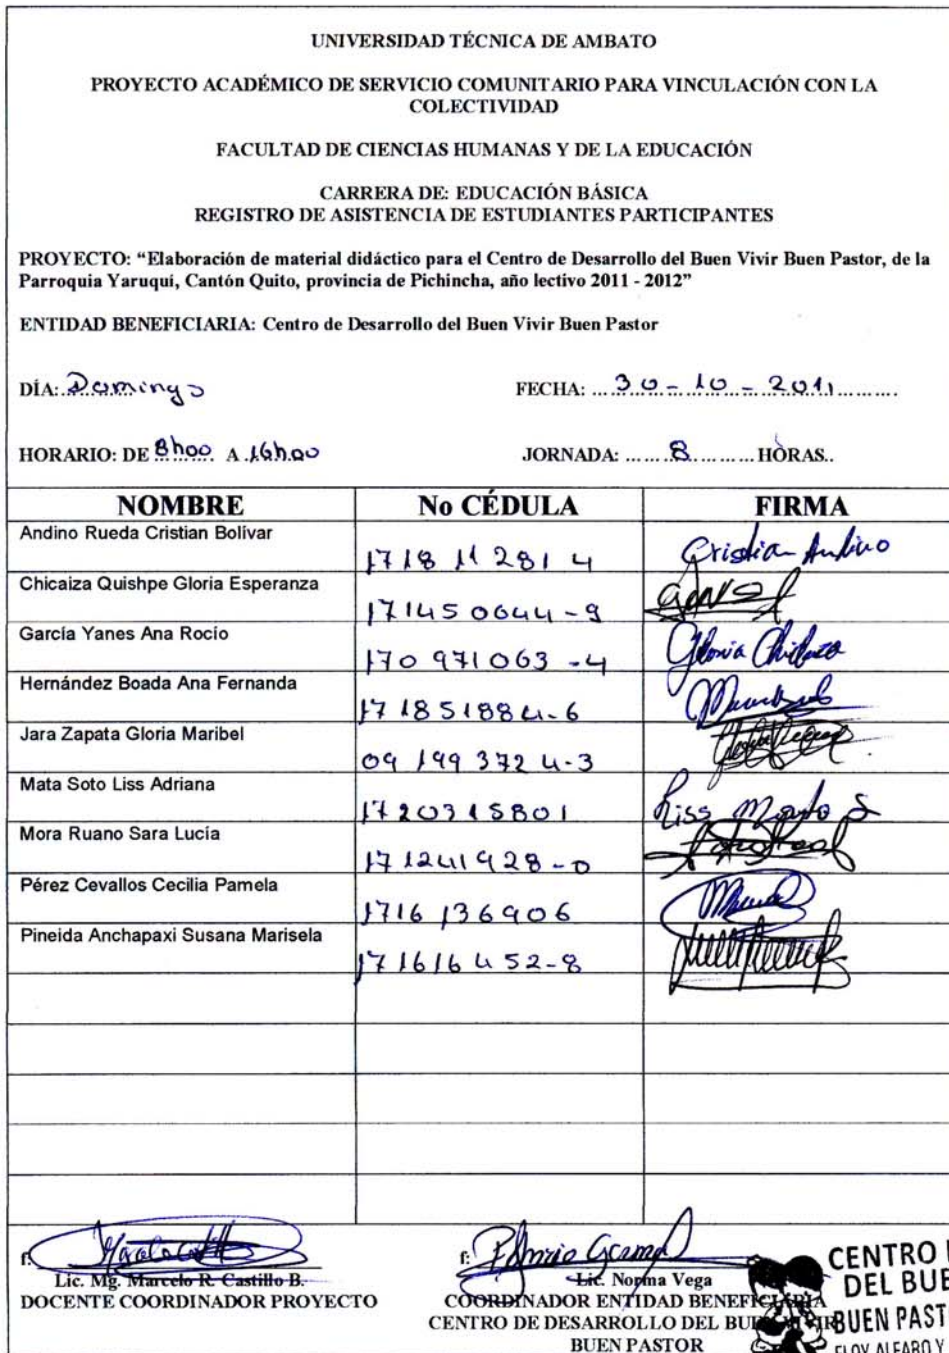 UNIVERSIDAD TÉCNICA DE AMBATO
PROYECTO ACADÉMICO DE SERVICIO COMUNITARIO PARA VINCULACIÓN CON LA
COLECTIVIDAD
FACULTAD DE CIENCIAS HUMANAS Y DE LA EDUCACIÓN
CARRERA DE: EDUCACIÓN BÁSICA
REGISTRO DE ASISTENCIA DE ESTUDIANTES PARTICIPANTES
PROYECTO: “Elaboración de material didáctico para el Centro de Desarrollo del Buen Vivir Buen Pastor, de la
Parroquia Yaruquí, Cantón Quito, provincia de Pichincha, año lectivo 2011 - 2012”
ENTIDAD BENEFICIARIA: Centro de Desarrollo del Buen Vivir Buen Pastor
DÍA: Domingo FECHA: 30-10-2011
HORARIO: DE 8h00 A 16h00 JORNADA: 8 HORAS..
NOMBRE No CÉDULA FIRMA
Andino Rueda Cristian Bolívar 1718112814 Cristian Andino
Chicaiza Quishpe Gloria Esperanza 171450644-9
García Yanes Ana Rocío 170971063-4 Gloria Chicaiza
Hernández Boada Ana Fernanda 171851884-6
Jara Zapata Gloria Maribel 091993724-3
Mata Soto Liss Adriana 1720315801 Liss Mata S
Mora Ruano Sara Lucía 171241928-0
Pérez Cevallos Cecilia Pamela 1716136906
Pineida Anchapaxi Susana Marisela 171616452-8
f: f:
Lic. Mg. Marcelo R. Castillo B. Lic. Norma Vega
DOCENTE COORDINADOR PROYECTO COORDINADOR ENTIDAD BENEFICIARIA
CENTRO DE DESARROLLO DEL BUEN VIVIR
BUEN PASTOR
CENTRO
DEL BUE
BUEN PAST
ELOY ALFARO Y